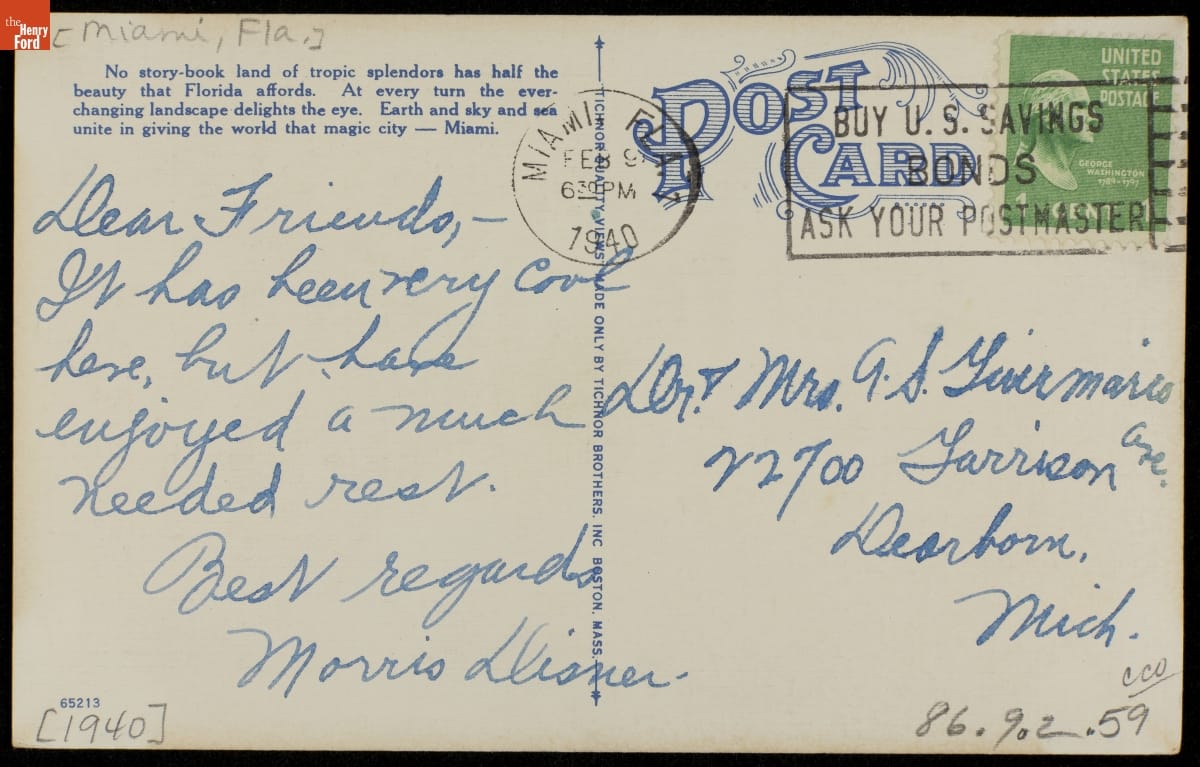 the
Henry
Ford
[Miami, Fla.]
No story-book land of tropic splendors has half the
beauty that Florida affords. At every turn the ever-
changing landscape delights the eye. Earth and sky and sea
unite in giving the world that magic city — Miami.
Dear Friends,—
It has been very cool
here, but have
enjoyed a much
needed rest.
Best regards
Morris Disner.
65213
[1940]
TICHNOR QUALITY VIEWS. MADE ONLY BY TICHNOR BROTHERS. INC BOSTON. MASS.
POST
CARD
MIAMI FLA.
FEB 9
630PM
1940
BUY U.S. SAVINGS
BONDS
ASK YOUR POSTMASTER
UNITED
STATES
POSTAGE
GEORGE
WASHINGTON
1789-1797
Dr. & Mrs. A. S.
22700 Garrison Ave.
Dearborn,
Mich.
cco
86.9.2.59